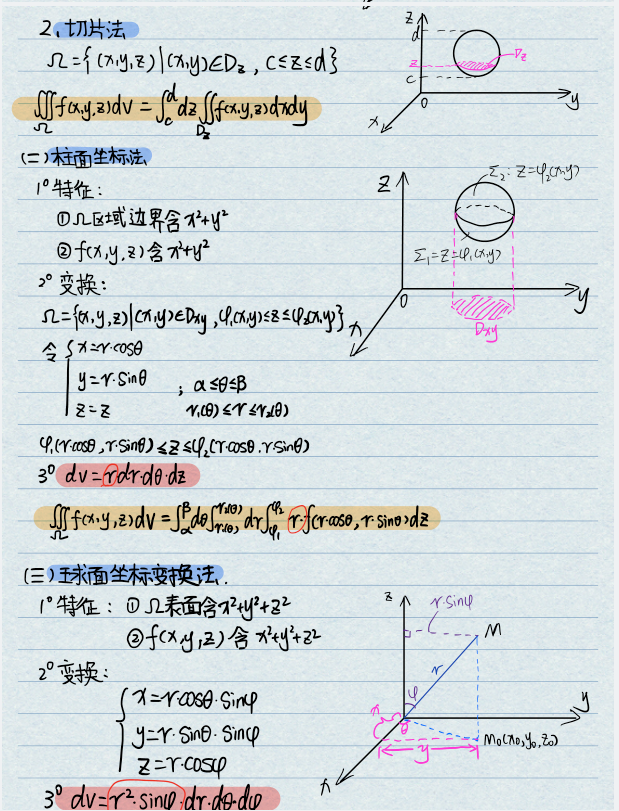 2、切片法
Ω={(x,y,z)|(x,y)∈Dz, c≤z≤d}
∭_Ω f(x,y,z)dv = ∫_c^d dz ∬_Dz f(x,y,z)dxdy
z
d
z
c
Dz
0
y
x
(二)柱面坐标法
1° 特征:
①Ω区域边界含x²+y²
②f(x,y,z)含x²+y²
2° 变换:
Ω={(x,y,z)|(x,y)∈Dxy, φ₁(x,y)≤z≤φ₂(x,y)}
令 { x=r·cosθ
y=r·sinθ ; α≤θ≤β
z=z r₁(θ)≤r≤r₂(θ)
φ₁(r·cosθ, r·sinθ)≤z≤φ₂(r·cosθ, r·sinθ)
3° dv=rdr·dθ·dz
∭_Ω f(x,y,z)dv = ∫_α^β dθ ∫_r₁(θ)^r₂(θ) dr ∫_φ₁^φ₂ r·f(r·cosθ, r·sinθ)dz
Z
Σ₂: z=φ₂(x,y)
Σ₁=z=φ₁(x,y)
0
y
Dxy
x
(三)球面坐标变换法.
1° 特征: ①Ω表面含x²+y²+z²
②f(x,y,z)含x²+y²+z²
2° 变换:
{ x=r·cosθ·sinφ
y=r·sinθ·sinφ
z=r·cosφ
3° dv=r²·sinφ·dr·dθ·dφ
z
r·sinφ
M
r
φ
x
θ
y
y
M₀(x₀,y₀,z₀)
x